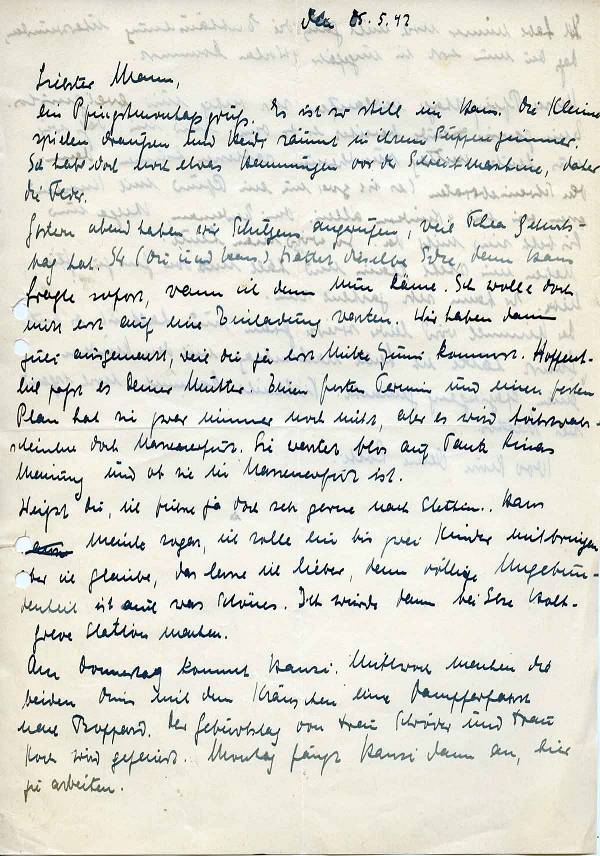 25.5.42
Liebster Mann,
ein Pfingstmontagsgruß. Es ist so still im Haus. Die Kleinen
spielen draußen und Heidi räumt in ihrem Puppenzimmer.
Ich habe doch noch etwas Hemmungen vor der Schreibmaschine, daher
die Feder.
Gestern abend haben wir angerufen, weil Thea Geburts-
tag hat. Sie ( und Hans) hattet dieselbe Idee, denn Hans
fragte sofort, wann ich denn nun käme. Ich wolle doch
nicht erst auf eine Einladung warten. Wir haben dann
Juni ausgemacht, weil du ja erst Mitte Juni kommst. Hoffent-
lich paßt es Deiner Mutter. Einen festen Termin und einen festen
Plan hat sie zwar immer noch nicht, aber es wird höchstwahr-
scheinlich doch Mariannenfurt. Sie wartet blos auf Tante
Meinung und ob sie in ist.
Weißt Du, ich führe ja doch sehr gerne nach Stettin. Hans
meinte sogar, ich solle ein bis zwei Kinder mitbringen,
aber ich glaube, das lasse ich lieber, denn völlige Ungebun-
denheit ist auch was Schönes. Ich würde dann bei Ilse Holt-
greve Station machen.
Am Donnerstag kommt Hansi. Mittwoch machen die
beiden Omis mit dem Kränzchen eine Dampferfahrt
nach Boppard. Der Geburtstag von Frau Schröder und Frau
Koch wird gefeiert. Montag fängt Hansi dann an, hier
zu arbeiten.